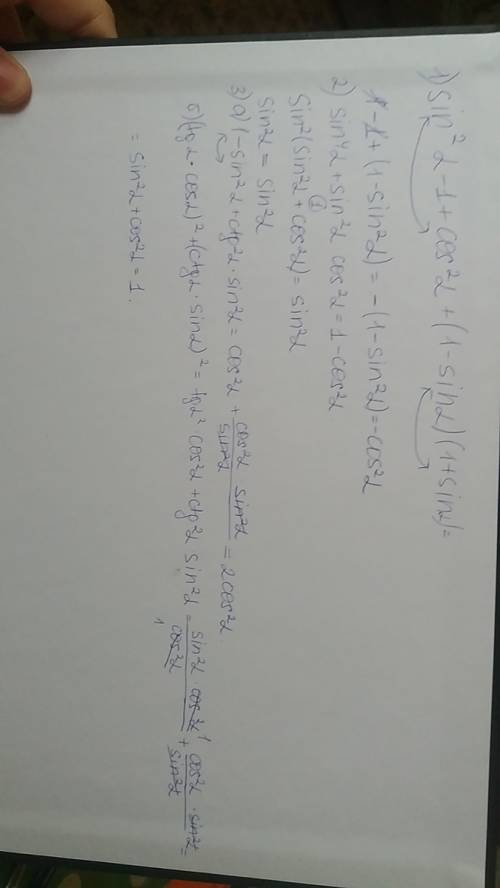 1) sin² α - 1 + cos² α + (1 - sin α)(1 + sin α) =
1 - 1 + (1 - sin²α) = -(1 - sin²α) = -cos²α
2) sin⁴α + sin²α cos²α = 1 - cos²α
sin²(sin²α + cos²α) = sin²α
1
sin²α = sin²α
3) а) 1 - sin²α + ctg²α · sin²α = cos²α + cos²α sin²α / sin²α = 2cos²α
б) (tgα · cosα)² + (ctgα · sinα)² = tgα² cos²α + ctg²α sin²α = sin²α · cos²α 1 / cos²α 1 + cos²α · sin²α / sin²α =
= sin²α + cos²α = 1.